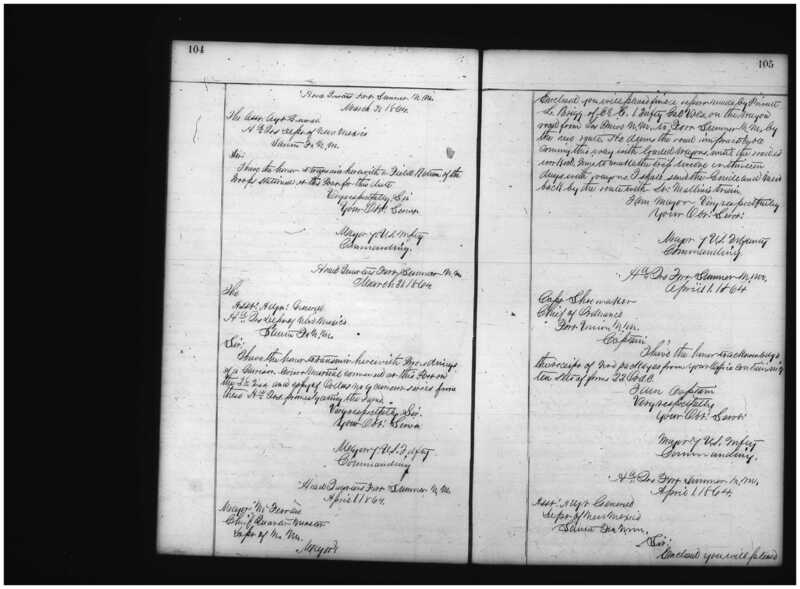 104
Head Quarters Fort Sumner N. M.
March 31 1864
The Asst. Adjt General
Hd Qrs Dept of New Mexico
Santa Fe N. M.
Sir
I have the honor to herewith a Field Return of the
Troops stationed at this Post for this date
Very respectfully, Sir
Your Obt. Servt
Major 7 U.S. Infty
Commanding.
Head Quarters Fort Sumner N. M.
March 31 1864
The
Asst. Adjt. General
Hd Qrs Dept of New Mexico
Santa Fe N. M.
Sir,
I have the honor to transmit herewith Proceedings
of a Garrison Court Martial convened at this Post on
the and copy of Orders No
these Hd Qrs. promulgating the same.
Very respectfully Sir
Your Obt. Servt
Major 7 U.S. Infty
Commanding
Head Quarters Fort Sumner N. M.
April 1 1864.
Major
Chief Quarter Master
Dept of N. M.
Major
105
Enclosed you will please find a report made by Private
of Co. 1 Infty Cal Vols. on the wagon
road from Los N. M. to Fort Sumner N. M. by
the new route. He deems the road impracticable
coming this way with loaded wagons, until the road is
worked. Time to make the trip twelve or thirteen
days with wagons. I shall send the Guide and
back by the route with Mr. train
I am Major Very respectfully
Your Obt. Servt.
Major 7 U.S. Infantry
Commanding.
Hd Qrs Fort Sumner N. M.
April 1. 1864
Capt Shoemaker
Chief of Ordnance
Fort Union N. M.
Captain
I have the honor to acknowledge
the receipt of two packages from your office containing
ten sets of forms
I am Captain
Very respectfully
Your Obt. Servt.
Major 7 U.S. Infty
Commanding.
Hd Qrs Fort Sumner N. M.
April 1. 1864
Asst. Adjt General
Dept of New Mexico
Santa Fe N. M.
Sir:
Enclosed you will please